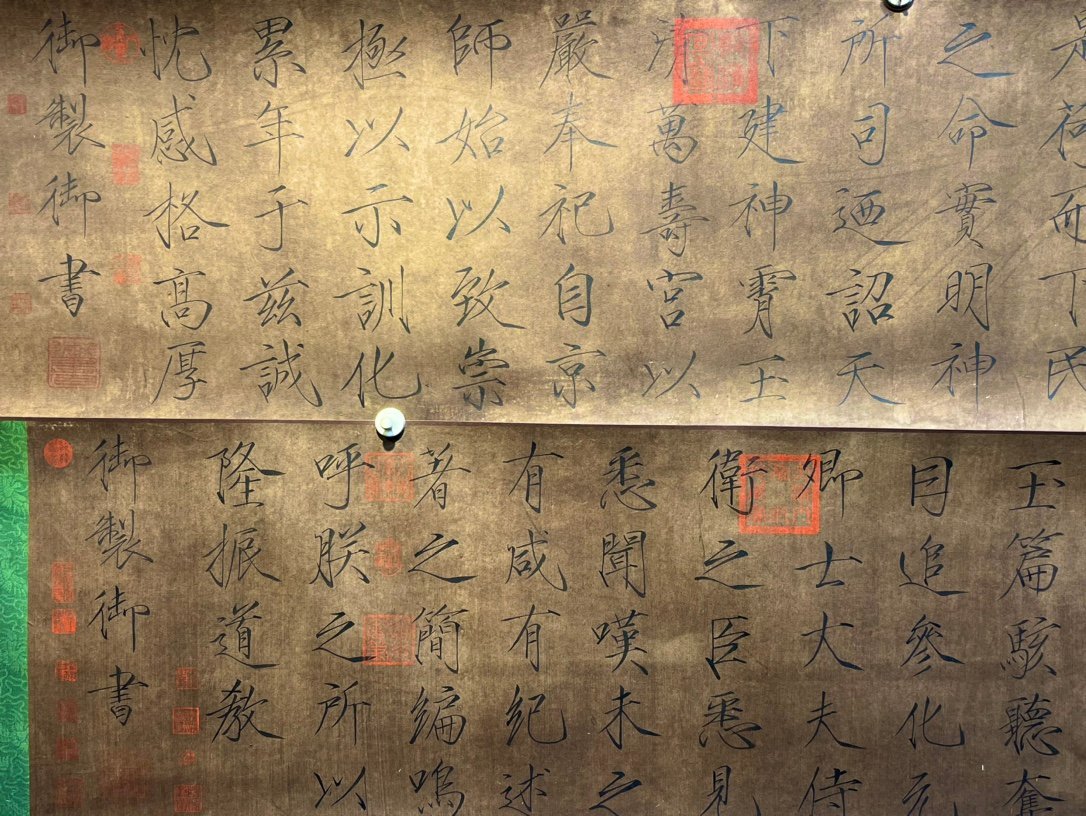 是荷而下民
之命實明神
所司迺詔天
下建神霄玉
清萬壽宮以
嚴奉祀自京
師始以致崇
極以示訓化
累年于茲誠
忱感格高厚
御製御書
玉篇駭聽奮
目追參化元
卿士大夫侍
衛之臣悉見
悉聞嘆未之
有咸有紀述
著之簡編嗚
呼朕之所以
隆振道教
御製御書